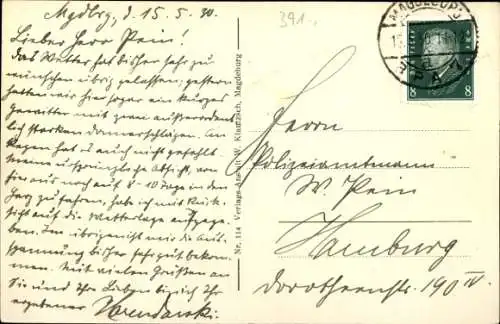 Mgdbrg, d. 15.5.30.
Lieber Herr Pein!
Das Wetter hat bisher sehr zu
wünschen übrig gelassen; gestern
hatten wir hier sogar ein kurzes
Gewitter mit zwei außerordent
lich starken Donnerschlägen. An
Regen hat es auch nicht gefehlt.
Meine ursprüngliche Absicht, von
hier aus noch auf 8-10 Tage in den
Harz zu fahren, habe ich mit Rück
sicht auf die Wetterlage aufgege
ben. Im übrigen ist mir die Aus
spannung bisher sehr gut bekom
men. Mit vielen Grüßen an
Sie und Ihre Lieben bin ich Ihr
ergebener
Nr. 114 Verlags-Anstalt W. Klautzsch, Magdeburg
391.
MAGDEBURG
8 8
Herrn
Polizeiamtmann
W. Pein
Hamburg
Dorotheenstr. 190 IV